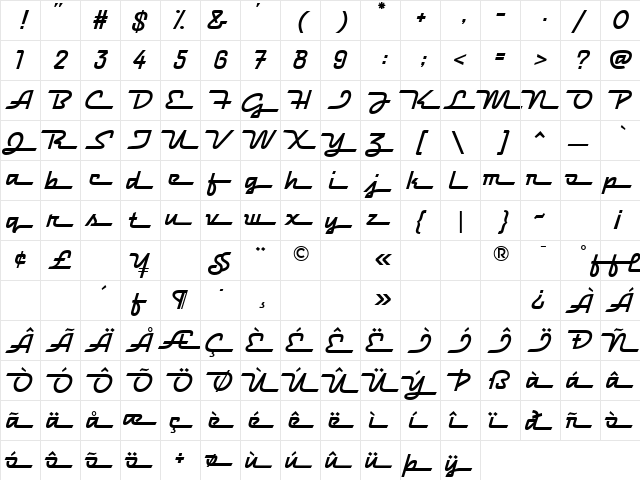 ! " # $ % & ' ( ) * + , - . / 0
1 2 3 4 5 6 7 8 9 : ; < = > ? @
A B C D E F G H I J K L M N O P
Q R S T U V W X Y Z [ \ ] ^ _ `
a b c d e f g h i j k l m n o p
q r s t u v w x y z { | } ~ ¡
¢ £ ¥ § ¨ © « ® ¯ ° ffl
´ ƒ ¶ · ¸ » ¿ À Á
Â Ã Ä Å Æ Ç È É Ê Ë Ì Í Î Ï Ð Ñ
Ò Ó Ô Õ Ö Ø Ù Ú Û Ü Ý Þ ß à á â
ã ä å æ ç è é ê ë ì í î ï ð ñ ò
ó ô õ ö ÷ ø ù ú û ü þ ÿ